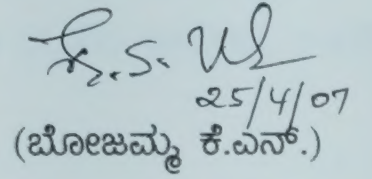 25/4/07
(ಬೋಜಮ್ಮ ಕೆ.ಎನ್.)